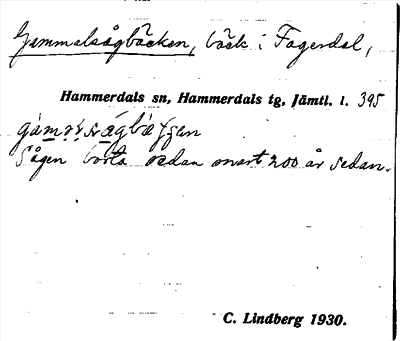 Gammelsågbäcken, bäck i Fagerdal,
Hammerdals sn, Hammerdals tg, Jämtl. l. 395
Sågen borta redan snart 200 år sedan.
C. Lindberg 1930.